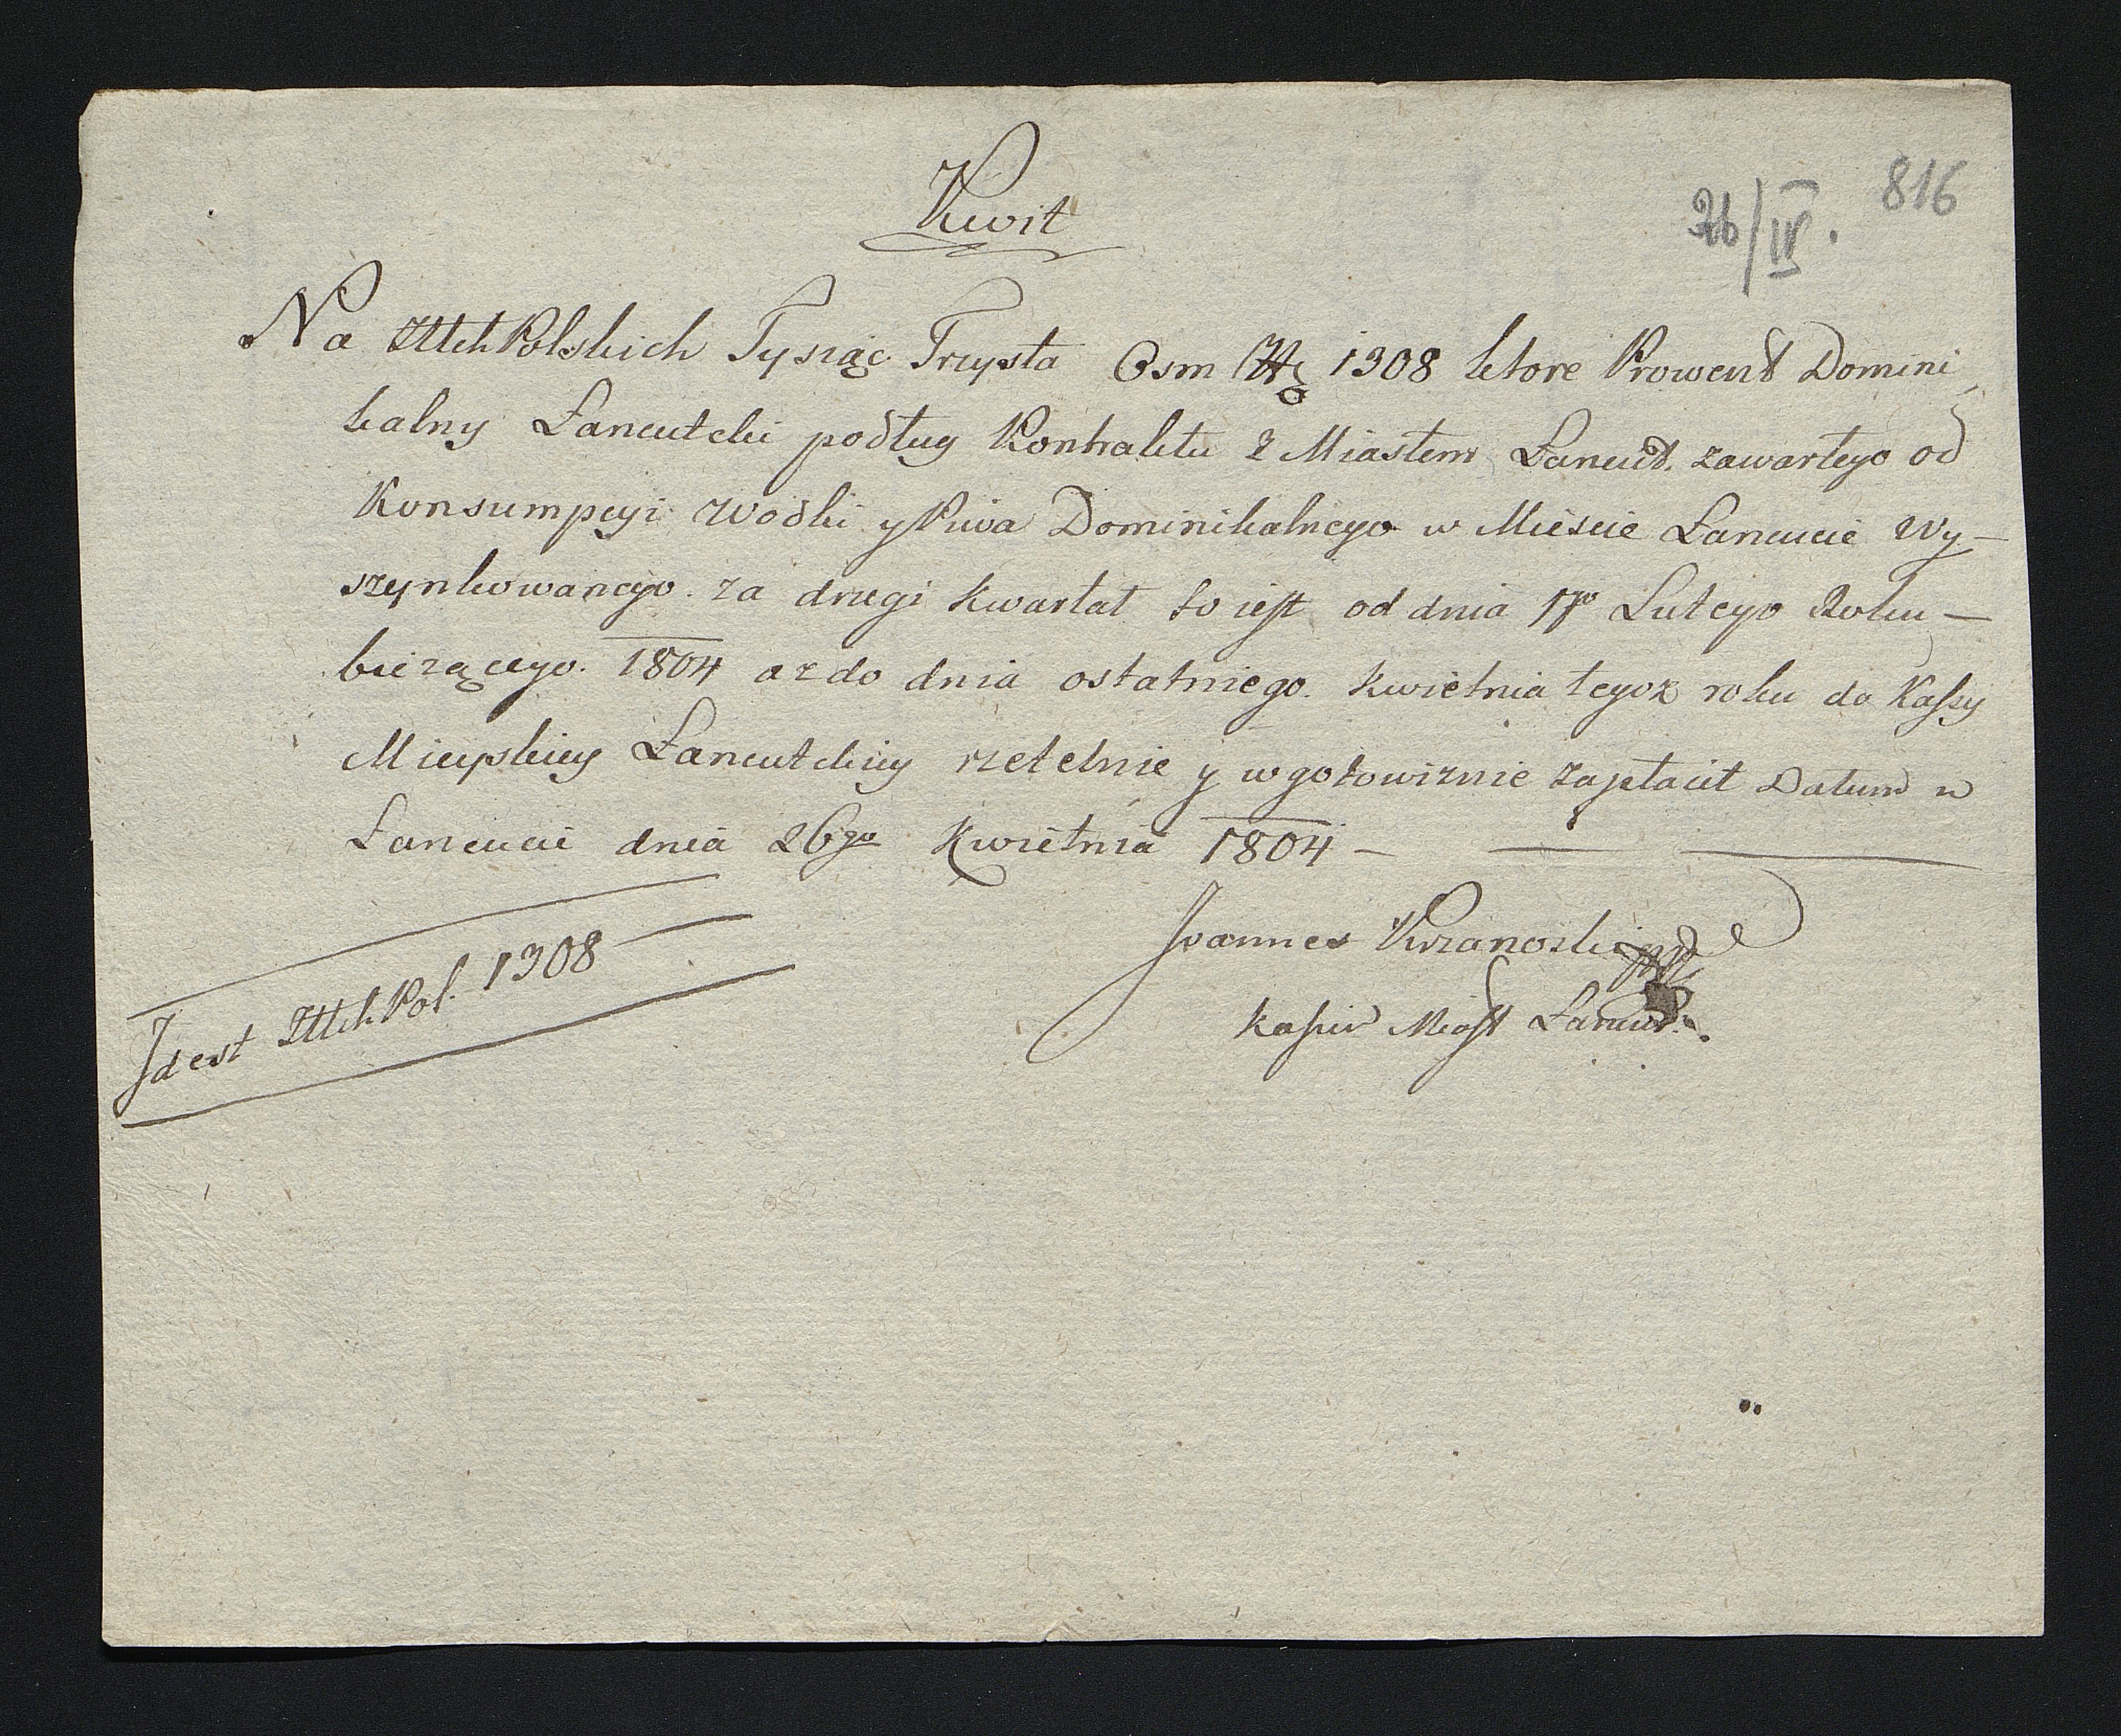 Kwit
26/IV. 816
Na Złłch Polskich Tysiąc Trzysta Osm 1308 ktore Prowent Domini
kalny Łancutcki podług Kontraktu z Miastem Łancut. zawartego od
Konsumpcyi Wodki y Piwa Dominikalnego w Miescie Łancucie Wy–
szynkowanego. za drugi kwartał to iest od dnia 1go Lutego Roku –
bieżącego. 1804 az do dnia ostatniego. kwietnia tegoz roku do Kassy
Mieyskiey Łancutckiey rzetelnie y w gotowiznie zapłacił Datum w
Łancucie dnia 26go Kwietnia 1804 –
Joannes Krzanoski
Idest Złłch Pol. 1308
kassier Miast Łancut.